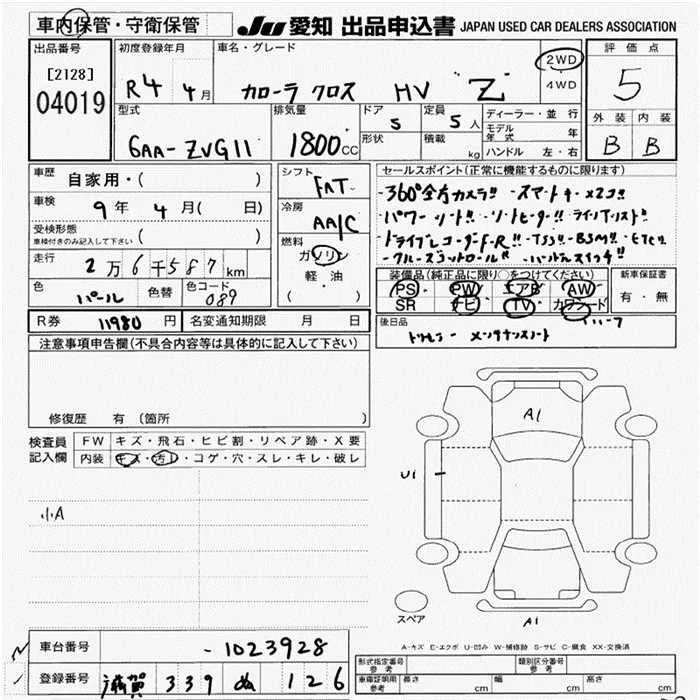 車内保管・守衛保管
JU 愛知 出品申込書 JAPAN USED CAR DEALERS ASSOCIATION
出品番号
[2128]
04019
初度登録年月
R4 4月
車名・グレード
カローラ クロス HV "Z"
2WD
4WD
評価点
5
外装 内装
B B
型式
6AA-ZVG11
排気量
1800cc
ドア
5
形状
定員
5人
積載
kg
ディーラー・並行
モデル年式 年
ハンドル 左・右
車歴
自家用・( )
車検
9年 4月( 日)
受検形態
車検付きのみ記入して下さい ( )
走行
2万6千587km
色
パール
色替
色コード
089
シフト
FAT
冷房
AA/C
燃料
ガソリン
軽・油
( )
セールスポイント(正常に機能するものに限ります)
・360°全方カメラ!! ・スマートキー×2コ!!
・パワーシート!! ・シートヒーター!!
・ドライブレコーダーF・R!! ・TSS!! ・BSM!! ・ETC!!
・クルーズコントロール!! ・ハンドルスイッチ!!
装備品(純正品に限り○をつけてください)
PS PW エアB AW
SR ナビ TV カワシート
新車保証書
有・無
後日品
トリセツ メンテナンスノート
R券 11980 円
名変通知期限 月 日
注意事項申告欄(不具合内容等は具体的に記入して下さい)
修復歴 有 (箇所 )
検査員
記入欄
FW キズ・飛石・ヒビ割・リペア跡・X要
内装 キズ・汚レ・コゲ・穴・スレ・キレ・破レ
小A
A1
U1
A1
スペア
A-キズ E-エクボ U-凹み W-補修跡 S-サビ C-腐食 XX-交換済
車台番号
-1023928
登録番号
滋賀 339 ぬ 126
形式指定番号
参考
類別区分番号
参考
車庫証明用
参考
長さ cm
幅 cm
高さ cm